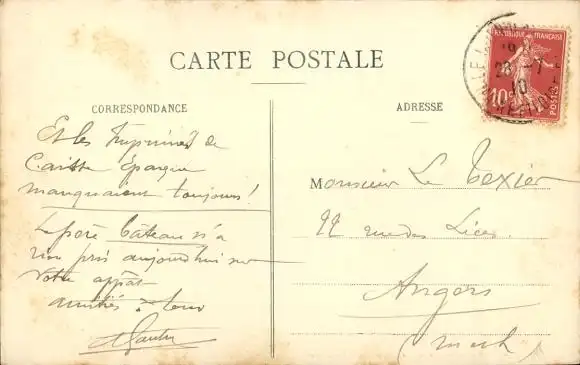 CARTE POSTALE
CORRESPONDANCE
Et les Imprimés de
Caisse Epargne
manquaient toujours!
Le père Câteau n'a
rien pris aujourd'hui sur
votre appât
amitiés à tous
ADRESSE
Monsieur Le Texier
22 rue des Lices.
Angers
REPUBLIQUE FRANÇAISE
10c
POSTES